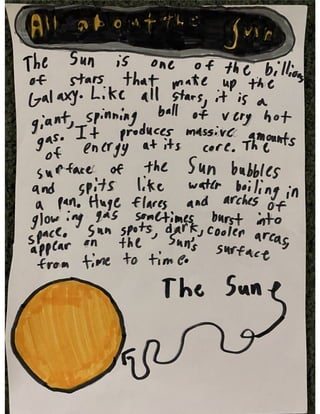 All about the Sun
The Sun is one of the billions
of stars that make up the
Galaxy. Like all stars, it is a
giant, spinning ball of very hot
gas. It produces massive amounts
of energy at its core. The
surface of the Sun bubbles
and spits like water boiling in
a pan. Huge flares and arches of
glowing gas sometimes burst into
space. Sun spots, dark, cooler areas,
appear on the Sun's surface
from time to time.
The Sun